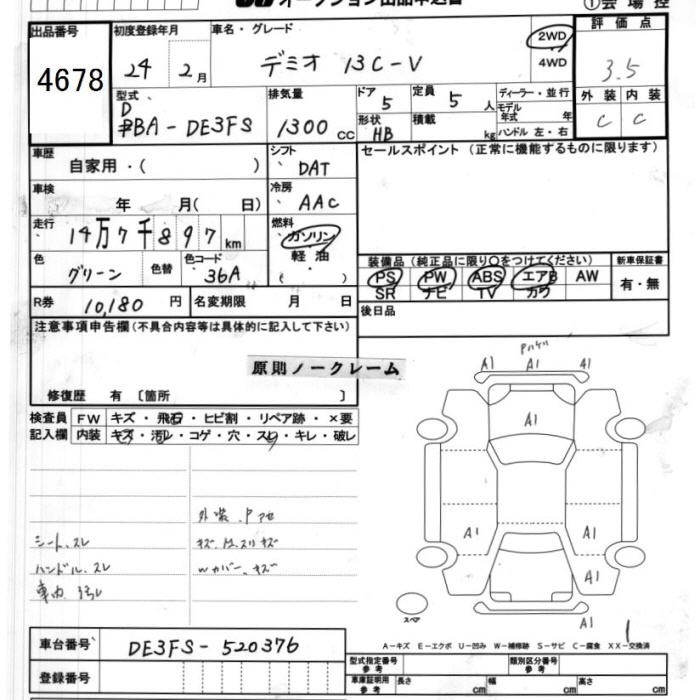 オークション出品申込書
①会場控
出品番号 初度登録年月 車名・グレード 評価点
4678
24 2月 デミオ 13C-V 2WD 4WD 3.5
型式 排気量 ドア 5 定員 5人 ディーラー・並行 外装 内装
DBA-DE3FS 1300cc 形状 HB 積載 kg モデル年式 年 C C
ハンドル 左・右
車歴 シフト セールスポイント (正常に機能するものに限ります)
自家用・( ) DAT
車検 冷房
年 月( 日) AAC
走行 燃料
14万7千897km ガソリン
軽油
( )
色 色替 色コード 装備品 (純正品に限り○をつけてください) 新車保証書
グリーン 36A PS PW ABS エアB AW 有・無
SR ナビ TV カワ
R券 10,180円 名変期限 月 日 後日品
注意事項申告欄 (不具合内容等は具体的に記入して下さい)
原則ノークレーム
修復歴 有 〔箇所 〕
検査員 FW キズ・飛石・ヒビ割・リペア跡・×要
記入欄 内装 キズ・汚レ・コゲ・穴・スレ・キレ・破レ
シート、スレ
ハンドル、スレ
車内 汚レ
キズ、
Wカバー、キズ
A1 A1 A1
A1
A1 A1
A1
A1
スペア
1
A-キズ E-エクボ U-凹み W-補修跡 S-サビ C-腐食 XX-交換済
車台番号 DE3FS-520376
登録番号
型式指定番号 参考 類別区分番号 参考
車庫証明用 参考 長さ cm 幅 cm 高さ cm